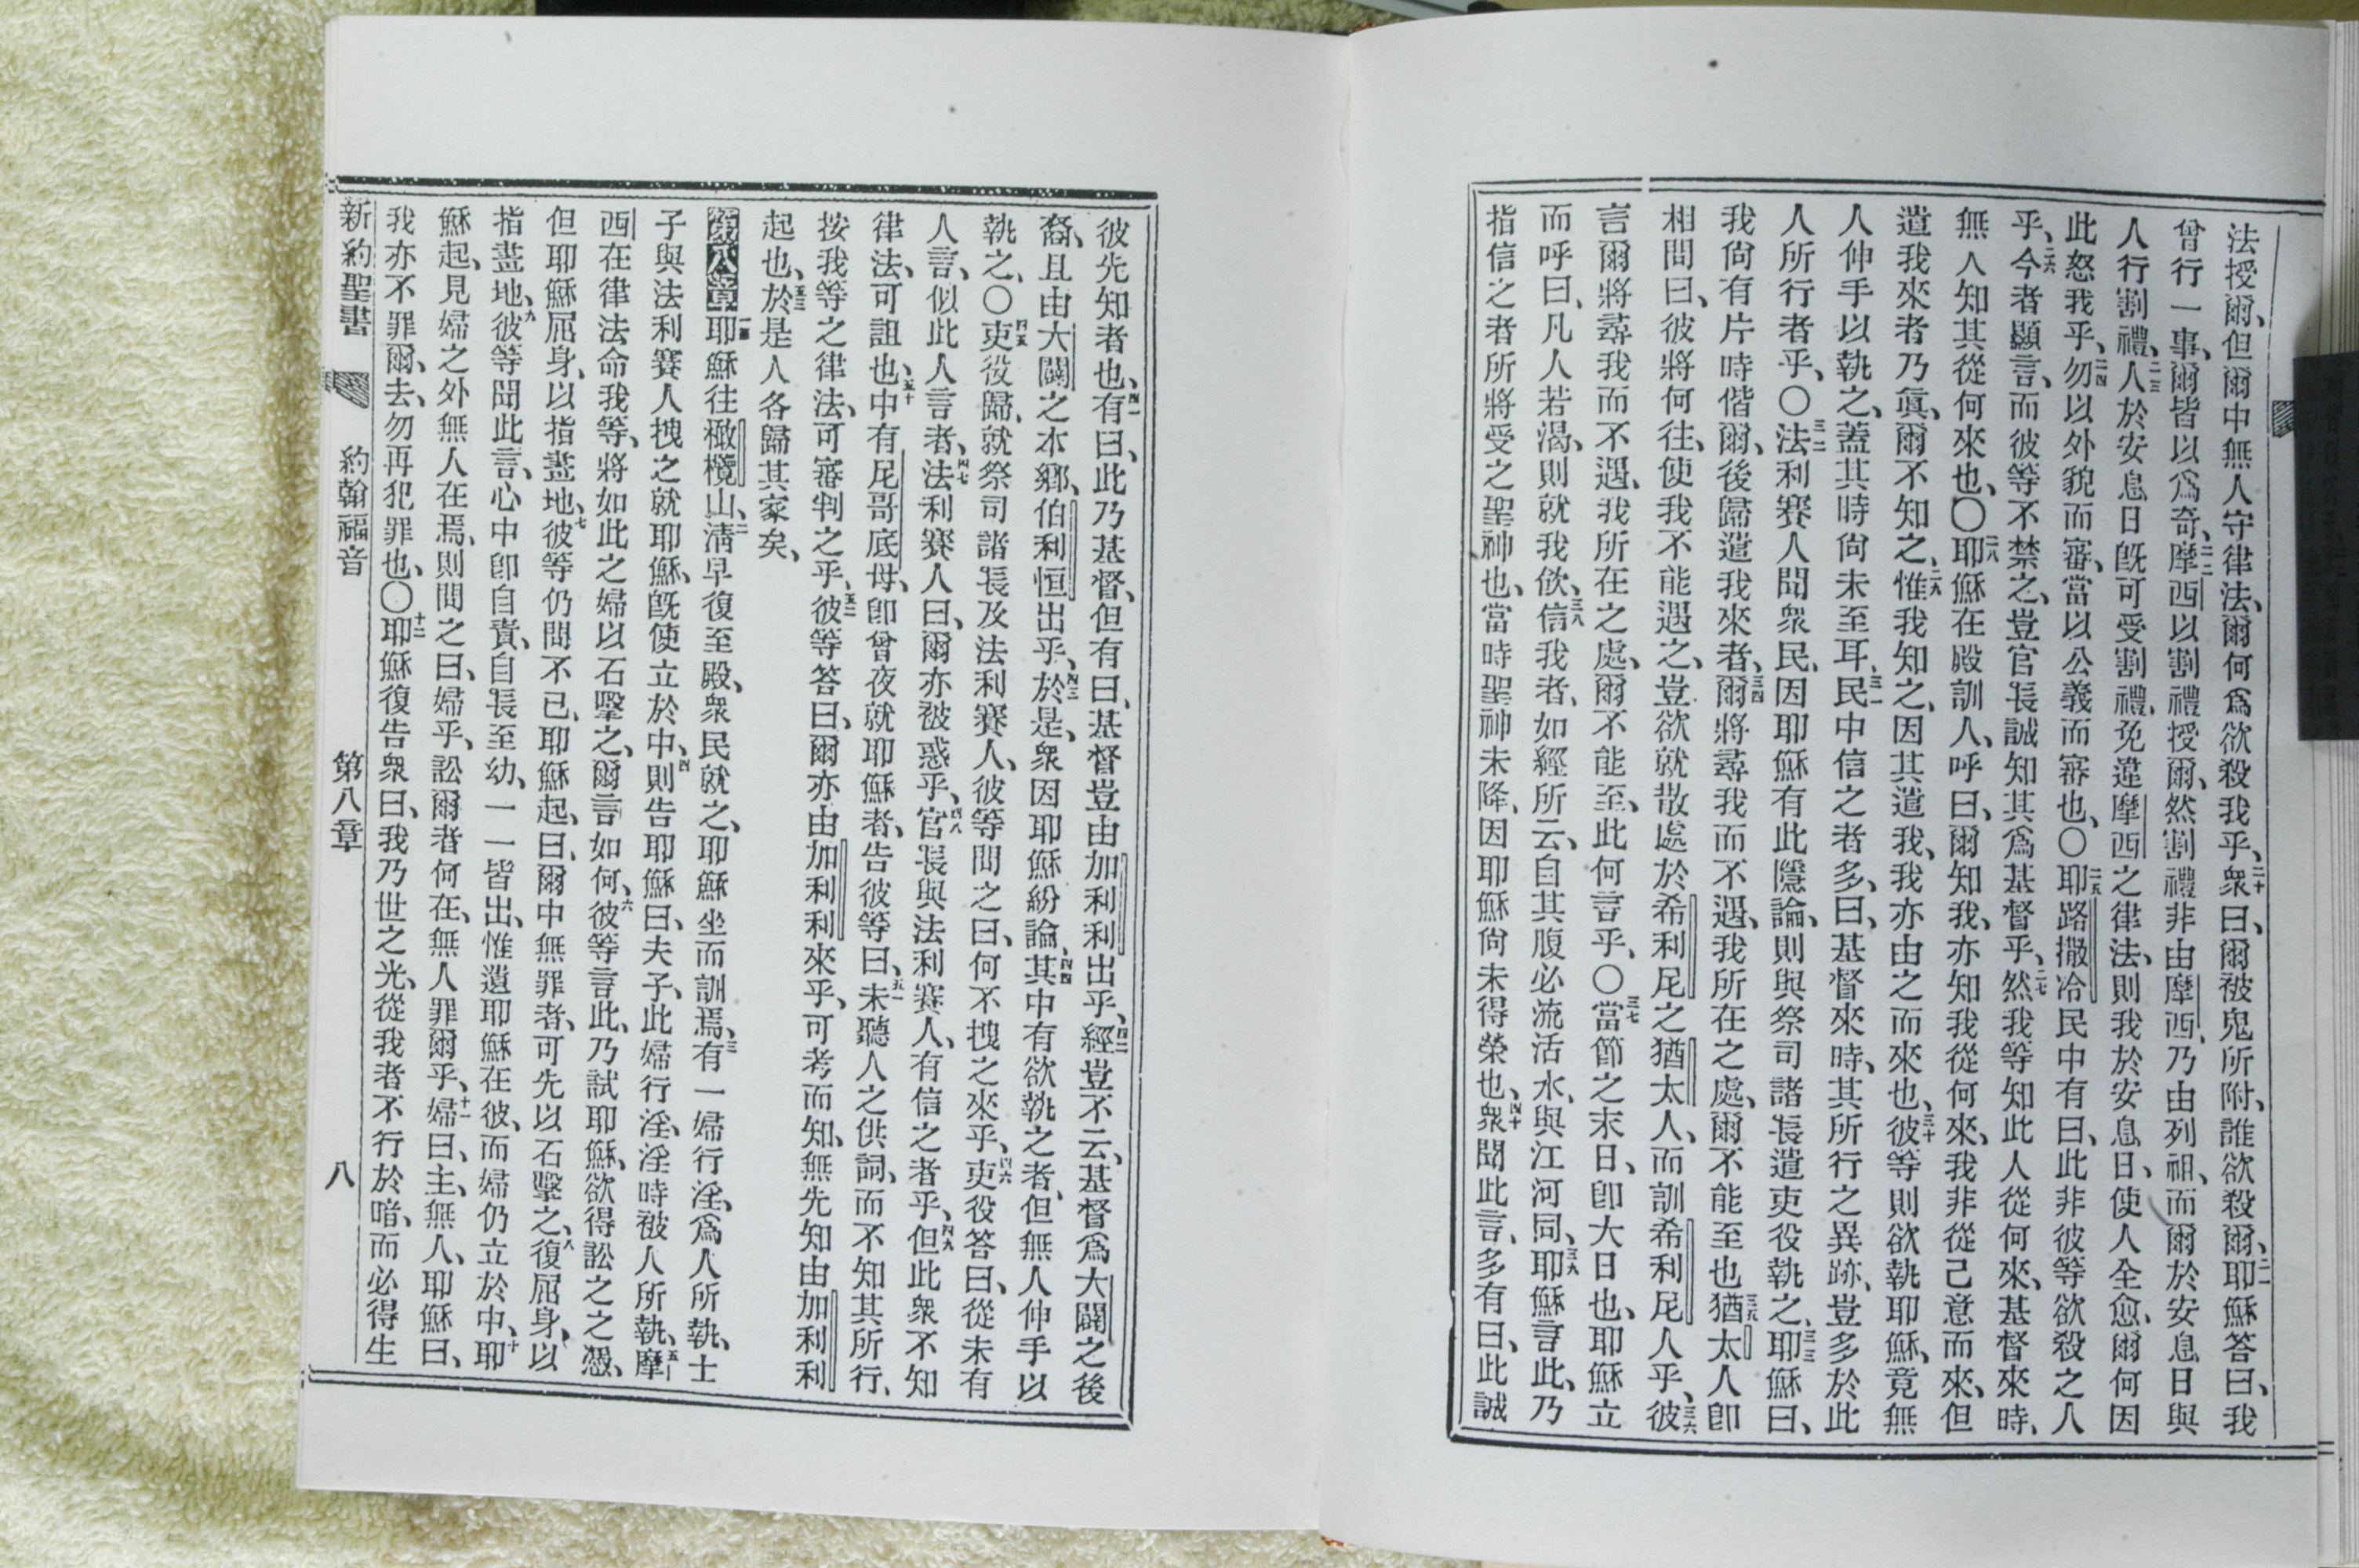 法授爾、但爾中無人守律法、爾何爲欲殺我乎、二十衆曰、爾被鬼所附、誰欲殺爾、二一耶穌答曰、我
曾行一事、爾皆以爲奇、二二摩西以割禮授爾、然割禮非由摩西、乃由列祖、而爾於安息日與
人行割禮、二三人於安息日旣可受割禮、免違摩西之律法、則我於安息日、使人全愈、爾何因
此怒我乎、二四勿以外貌而審、當以公義而審也、〇二五耶路撒冷民中有曰、此非彼等欲殺之人
乎、二六今者顯言、而彼等不禁之、豈官長誠知其爲基督乎、二七然我等知此人從何來、基督來時、
無人知其從何來也、〇二八耶穌在殿訓人、呼曰、爾知我、亦知我從何來、我非從己意而來、但
遣我來者乃眞、爾不知之、二九惟我知之、因其遣我、我亦由之而來也、三十彼等則欲執耶穌、竟無
人伸手以執之、蓋其時尙未至耳、三一民中信之者多、曰、基督來時、其所行之異跡、豈多於此
人所行者乎、〇三二法利賽人聞衆民、因耶穌有此隱論、則與祭司諸長遣吏役執之、三三耶穌曰、
我尙有片時偕爾、後歸遣我來者、三四爾將尋我而不遇、我所在之處、爾不能至也三五猶太人卽
相問曰、彼將何往、使我不能遇之、豈欲就散處於希利尼之猶太人、而訓希利尼人乎、三六彼
言爾將尋我而不遇、我所在之處、爾不能至、此何言乎、〇三七當節之末日、卽大日也、耶穌立
而呼曰、凡人若渴、則就我飮、三八信我者、如經所云、自其腹必流活水、與江河同、三九耶穌言此、乃
指信之者所將受之聖神也、當時聖神未降、因耶穌尙未得榮也、四十衆聞此言、多有曰、此誠
彼先知者也、四一有曰、此乃基督、但有曰、基督豈由加利利出乎、四二經豈不云、基督爲大闢之後
裔、且由大闢之本鄉、伯利恒出乎、四三於是、衆因耶穌紛論、四四其中有欲執之者、但無人伸手以
執之、〇四五吏役歸、就祭司諸長及法利賽人、彼等問之曰、何不拽之來乎、四六吏役答曰、從未有
人言、似此人言者、四七法利賽人曰、爾亦被惑乎、四八官長與法利賽人、有信之者乎、四九但此衆不知
律法、可詛也、五十中有尼哥底母、卽曾夜就耶穌者、告彼等曰、五一未聽人之供詞、而不知其所行、
按我等之律法、可審判之乎、五二彼等答曰、爾亦由加利利來乎、可考而知、無先知由加利利
起也、五三於是人各歸其家矣、
第八章一節耶穌往橄欖山、二淸早復至殿、衆民就之、耶穌坐而訓焉、三有一婦行淫、爲人所執、士
子與法利賽人拽之就耶穌、旣使立於中、四則告耶穌曰、夫子、此婦行淫、淫時被人所執、五摩
西在律法命我等、將如此之婦以石擊之、爾言如何、六彼等言此、乃試耶穌、欲得訟之之憑、
但耶穌屈身、以指畫地、七彼等仍問不已、耶穌起、曰、爾中無罪者、可先以石擊之、八復屈身、以
指畫地、九彼等聞此言、心中卽自責、自長至幼、一一皆出、惟遺耶穌在彼、而婦仍立於中、十耶
穌起、見婦之外無人在焉、則問之曰、婦乎、訟爾者何在、無人罪爾乎、十一婦曰、主、無人、耶穌曰、
我亦不罪爾、去、勿再犯罪也、〇十二耶穌復告衆曰、我乃世之光、從我者不行於暗、而必得生
新約聖書 約翰福音 第八章 八